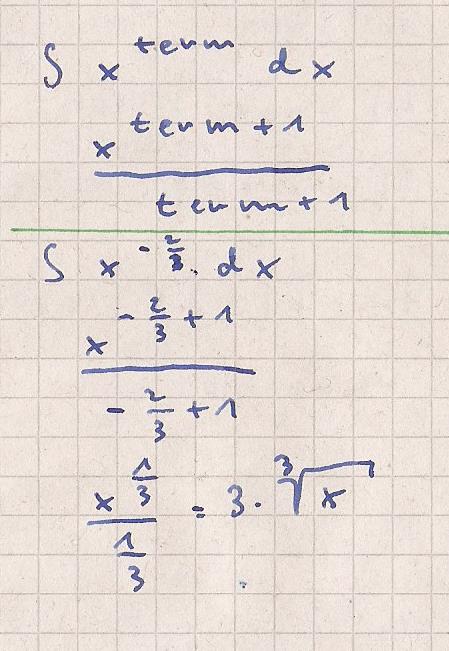 ∫ x^term dx
x^(term + 1)
term + 1
∫ x^(-2/3) · dx
x^(-2/3 + 1)
-2/3 + 1
x^(1/3) / (1/3) = 3 · ∛x